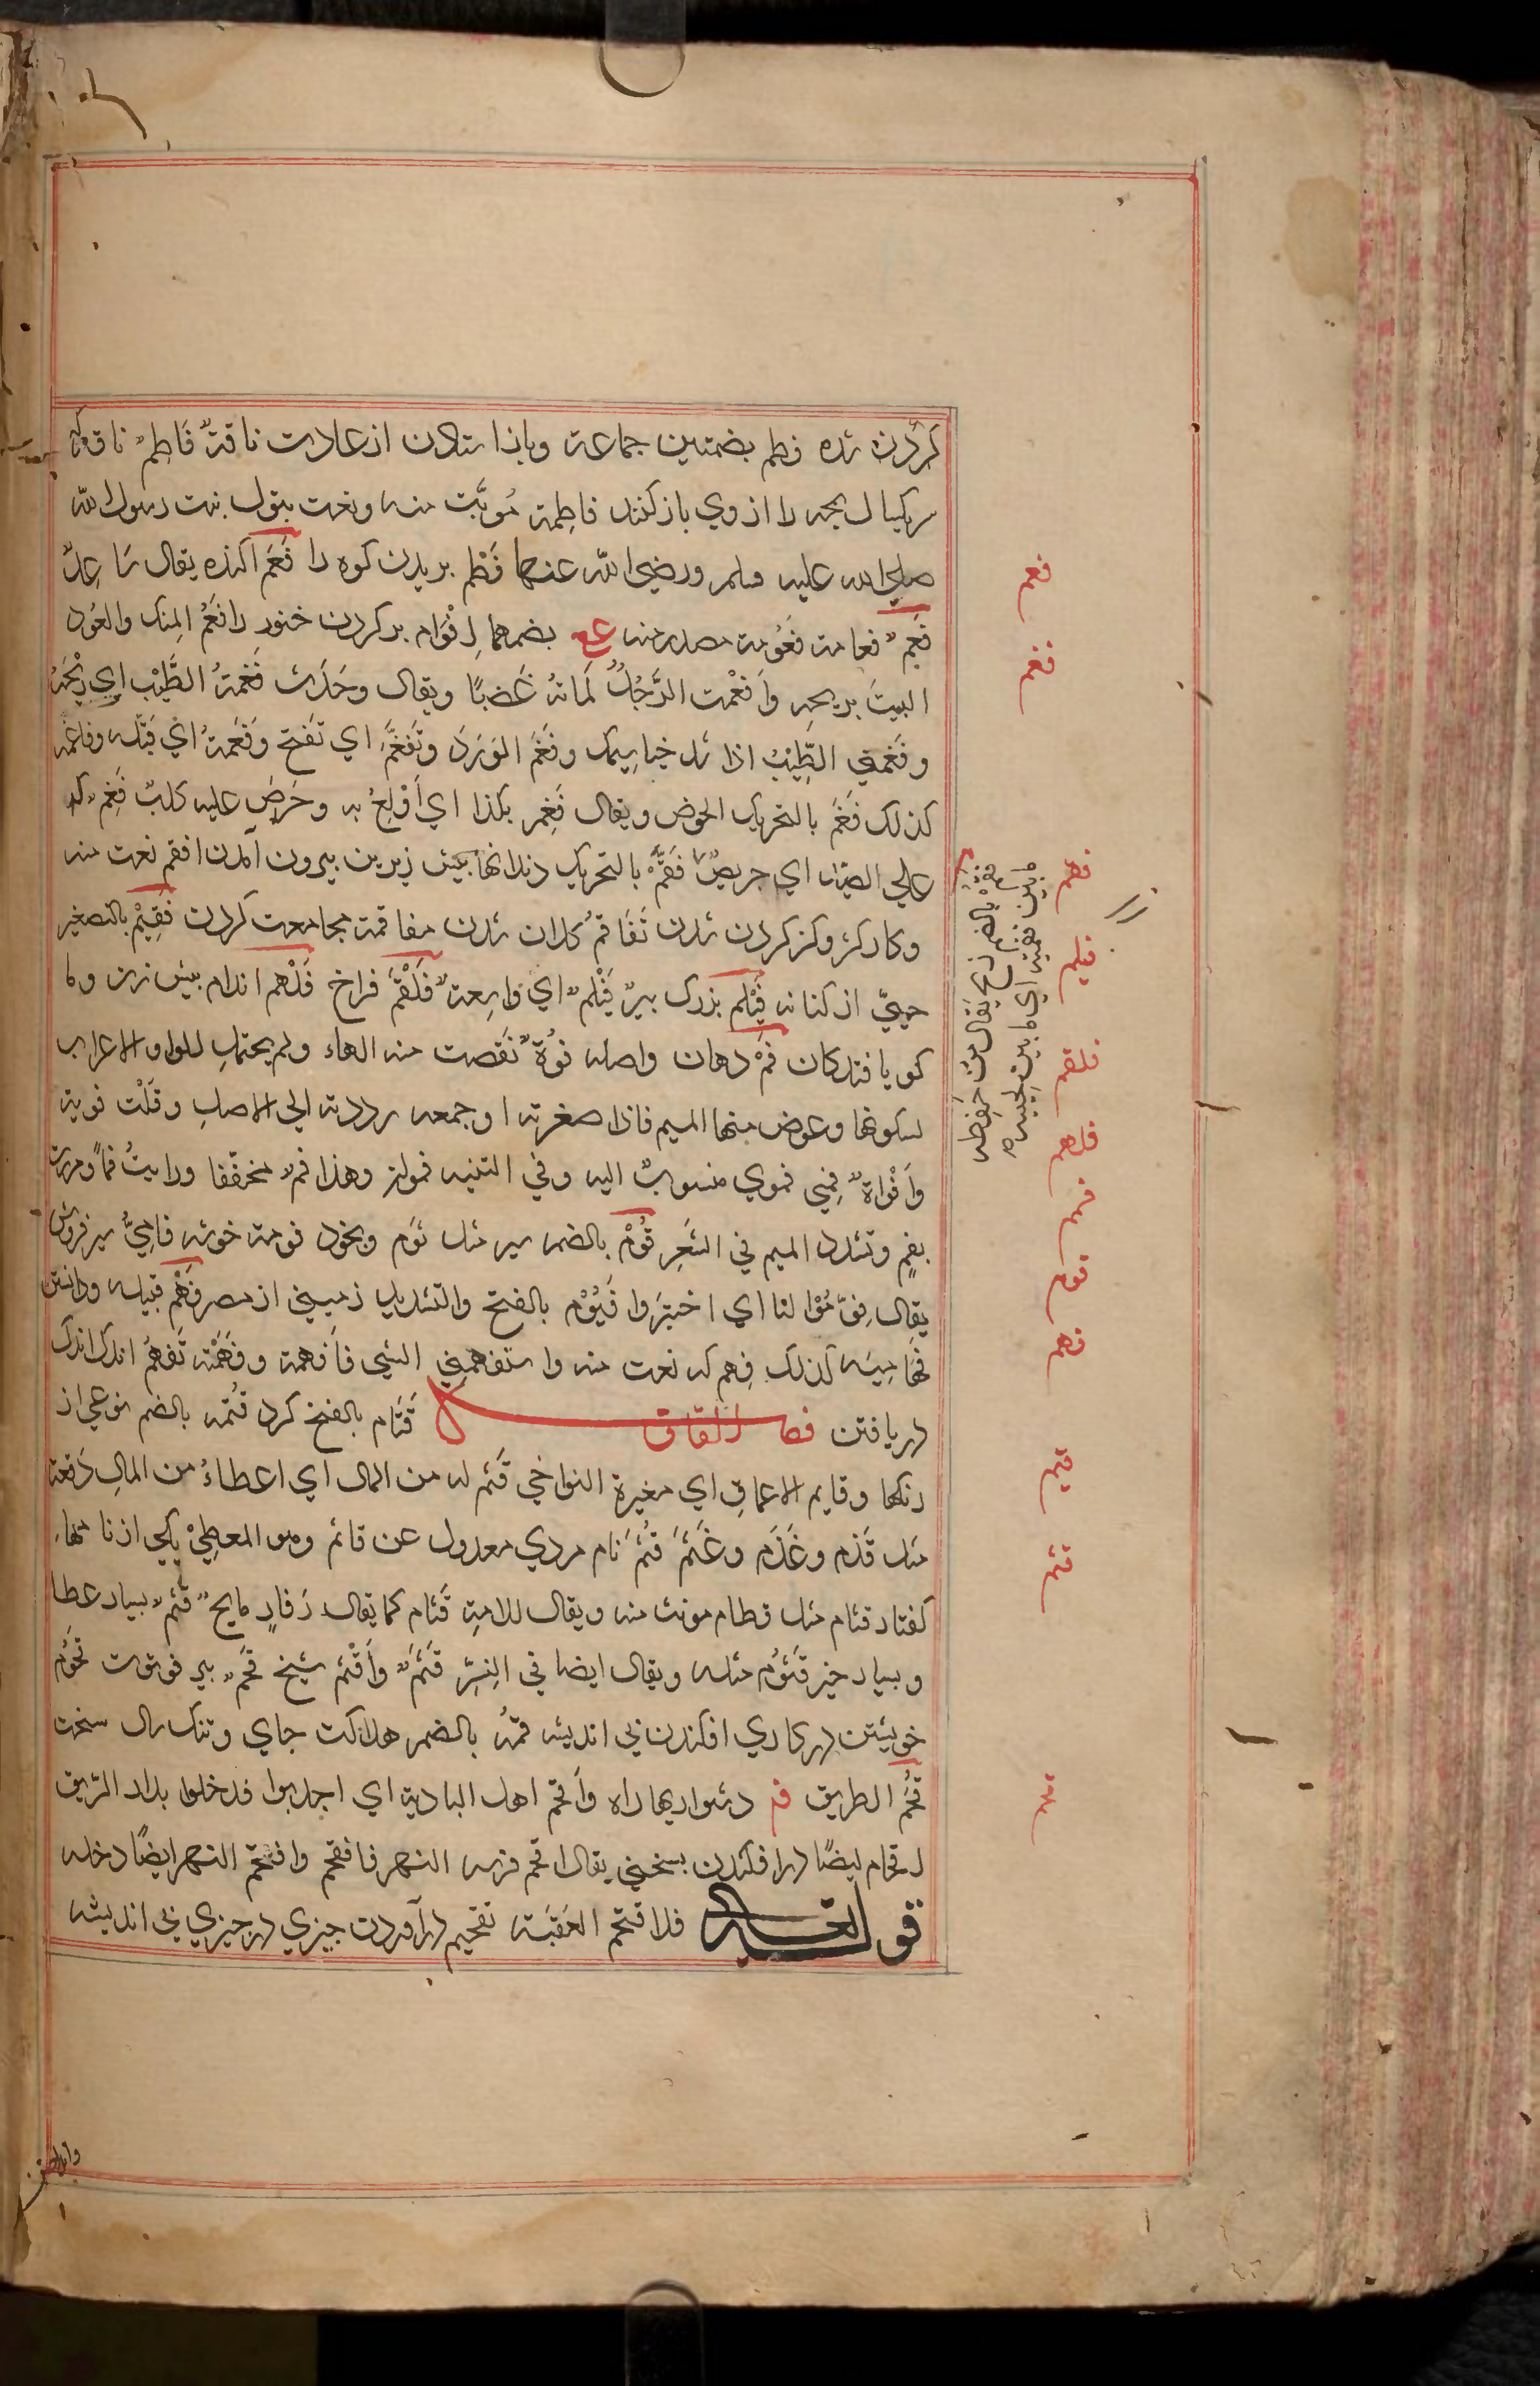 کردن شده فطم بضمتین جماعة وبازاستادن از عادت ناقة فَاطِم ناقه که
یکسال بچه را از وی باز کنند فاطمة مؤنث منه ونعت بتول بنت رسول الله
صلی الله علیه وسلم ورضی الله عنها فَطْم بریدن کوه را فَعَم اکنده یقال سَاعِدٌ
فَعِمٌ فعامة فَعُومة مصدر منه بضمهما اِفْوَام پر کردن خنور را فَعَمُ المِسک والعُود
البیتَ بریحه وَاَفعَمْت الرَّجُلُ مَلَاتهُ غَضبًا ویقال وَجَدت فَغْمَةُ الطِّیْبِ ای رِیْحَهُ
وفَغَمَنی الطِّیْبُ اذا سد خیاشیمک وفَغَم الوَرَد وتَفَغَّم ای تَفَتَّح وَفَغَمَهُ ای قبَّله وفاغمه
کذلک فَغَم بالتحریک الحرص ویقال فَغِم بکذا ای اُوْلِعُ به وحَرِصَ علیه کلبٌ فَغِم کذ
علی الصید ای حریصٌ فَقَم بالتحریک دندانها پیش زیرین بیرون آمدن افقم نعت منه
وکار کژ وکژ کردن شدن تَفَاقمُ کلان شدن مفاقمة مجامعت کردن فُقَیْم بالتصغیر
حییّ از کنانه فَیْلَم بزرک بیر فَیْلَم ای وَاسِعة فَلْقَم فراخ فَلْهَم اندام پیش زن ولا
کو یافتد کان فَمْ دهان واصله فُوْهٌ نَقصت منه الهاء ولم یحتمل الواو الاعراب
لسکونها وعوض منها المیم فاذا صغرته او جمعه رددته الی الاصل وقُلْت فویه
وَاَفْوَاهٌ فِمِی فموی منسوبٌ الیه وفی التثنیه فموان وهذا فم مخففا ورایتُ فمًا ومررت
بفمٍ وتشدد المیم فی الشِّعِر فُوْمْ بالضم سیر مثل ثوم وبخود فومة خوشه فامِیٌّ سیر فروش
یقال فوّمُوْا لنا ای اختبزوا فَیُّوْم بالفتح والتشدید زمینی از مصر فَهْم قبیله ودانستن
فَهَامِیَه کذلک فِهم که نعت منه واستفهمنی الشی فَاَفهمة وفَهَّمْته تَفَهُّم اندک اندک
دریافتن فصل القاف قَتَام بالفتح کرد قُتمه بالضم نوعی از
رنکها وقایم الاعماق ای مغبرة النواحی قَثَم له من المال ای اعطاءُ من المال دَفعة
مثل قَذَم وغَذَم وغَثَم قُثَم نام مردی معدول عن قائم وهو المعطِیْ یکی از نامهاء
کفتار قثام مثل قطام مونث منه ویقال للامة قَثَام کما یقال دَفَارِ مایح قُثَم بسیار عطا
وبسیار خیر قَثُوْم مثله ویقال ایضا فی الشَرِ قَثَمَ وَاَقْثَم شیخ قَحْم پیر فرتوت قُحُوم
خویشتن در کاری افکندن بی اندیشه قُحْمةُ بالضم هلاکت جای وتنک سال سخت
قُحَم الطریق دشواریهاء راه وَاَقْحم اهل البادیة ای اجدبوا فدخلوا بلاد الریف
اقحام ایضًا در افکندن بسختی یقال اقحم فرسه النهر فاقحم واقتحم النهر ایضًا دخله
قوله تعالی فلا اقتحم العَقَبَة تقحیم درآوردن چیزی در چیزی بی اندیشه
فعم
فغم
فقم
فیلم
فلقم
فلهم
فم
فوم
فهم
قتم
قثم
قحم
فقم بالضم زنخ یقال من حفظ
ما بین فقمیه ای ما بین لحییه